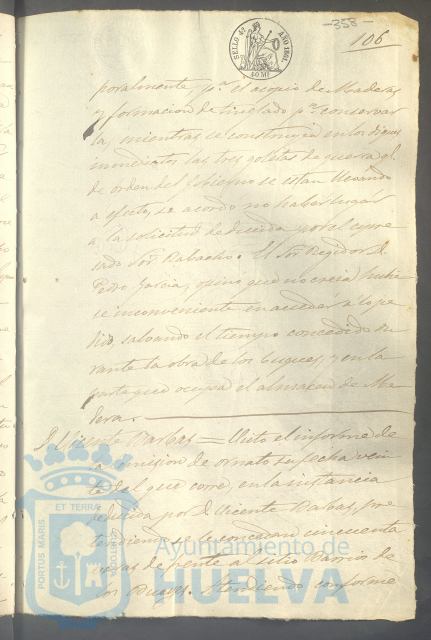 SELLO 4º AÑO 1861.
40 Ms
-358-
106
poralmente pª el acopio de Maderas
y formacion de tinglado pª conservar
la, mientras se construyen en los diques
inmediatos las tres goletas de guerra q.
de orden del Gobierno se estan llevando
a efecto, se acordó no haber lugar
a la solicitud deducida por el espre
sado Sor Rabacho. El Sor Regidor D.
Pedro Garcia, opinó que no creia hubie
se inconveniente en acceder a lo pe
dido, salvando el tiempo concedido du
rante la obra de los Buques, y en la
parte que ocupa el almacen de Ma
dera.
D. Vicente Barbas = Visto el informe de
la comision de ornato su fecha vein
te del que corre, en la instancia
deducida por D. Vicente Barbas, pre
tendiendo se le concedan cincuenta
varas de frente al sitio Barrio de
los. Atendiendo conforme
PORTUS MARIS ET TERRAE CUSTODIA
Ayuntamiento de
HUELVA